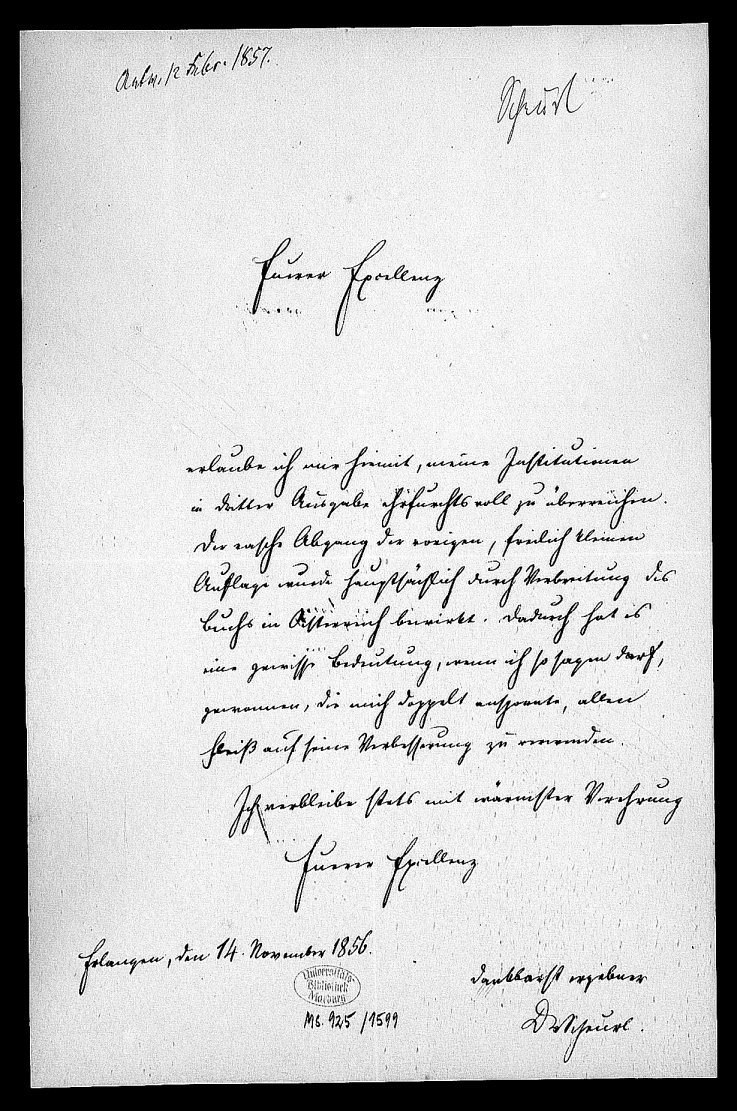 Antw. 12 Febr. 1857.
Scheurl
Eurer Excellenz
erlaube ich mir hiemit, meine Institutionen
in dritter Ausgabe ehrfurchtsvoll zu überreichen.
Der rasche Abgang der vorigen, freilich kleinen
Auflage wurde hauptsächlich durch Verbreitung des
Buchs in Österreich bewirkt. Dadurch hat es
eine gewisse Bedeutung, wenn ich so sagen darf,
gewonnen, die mich doppelt anspornte, allen
Fleiß auf seine Verbesserung zu verwenden.
Ich verbleibe stets mit wärmster Verehrung
Eurer Excellenz
Erlangen, den 14. November 1856.
dankbarst ergebner
Scheurl.
Universitäts-
Bibliothek
Marburg
Ms. 925/1599